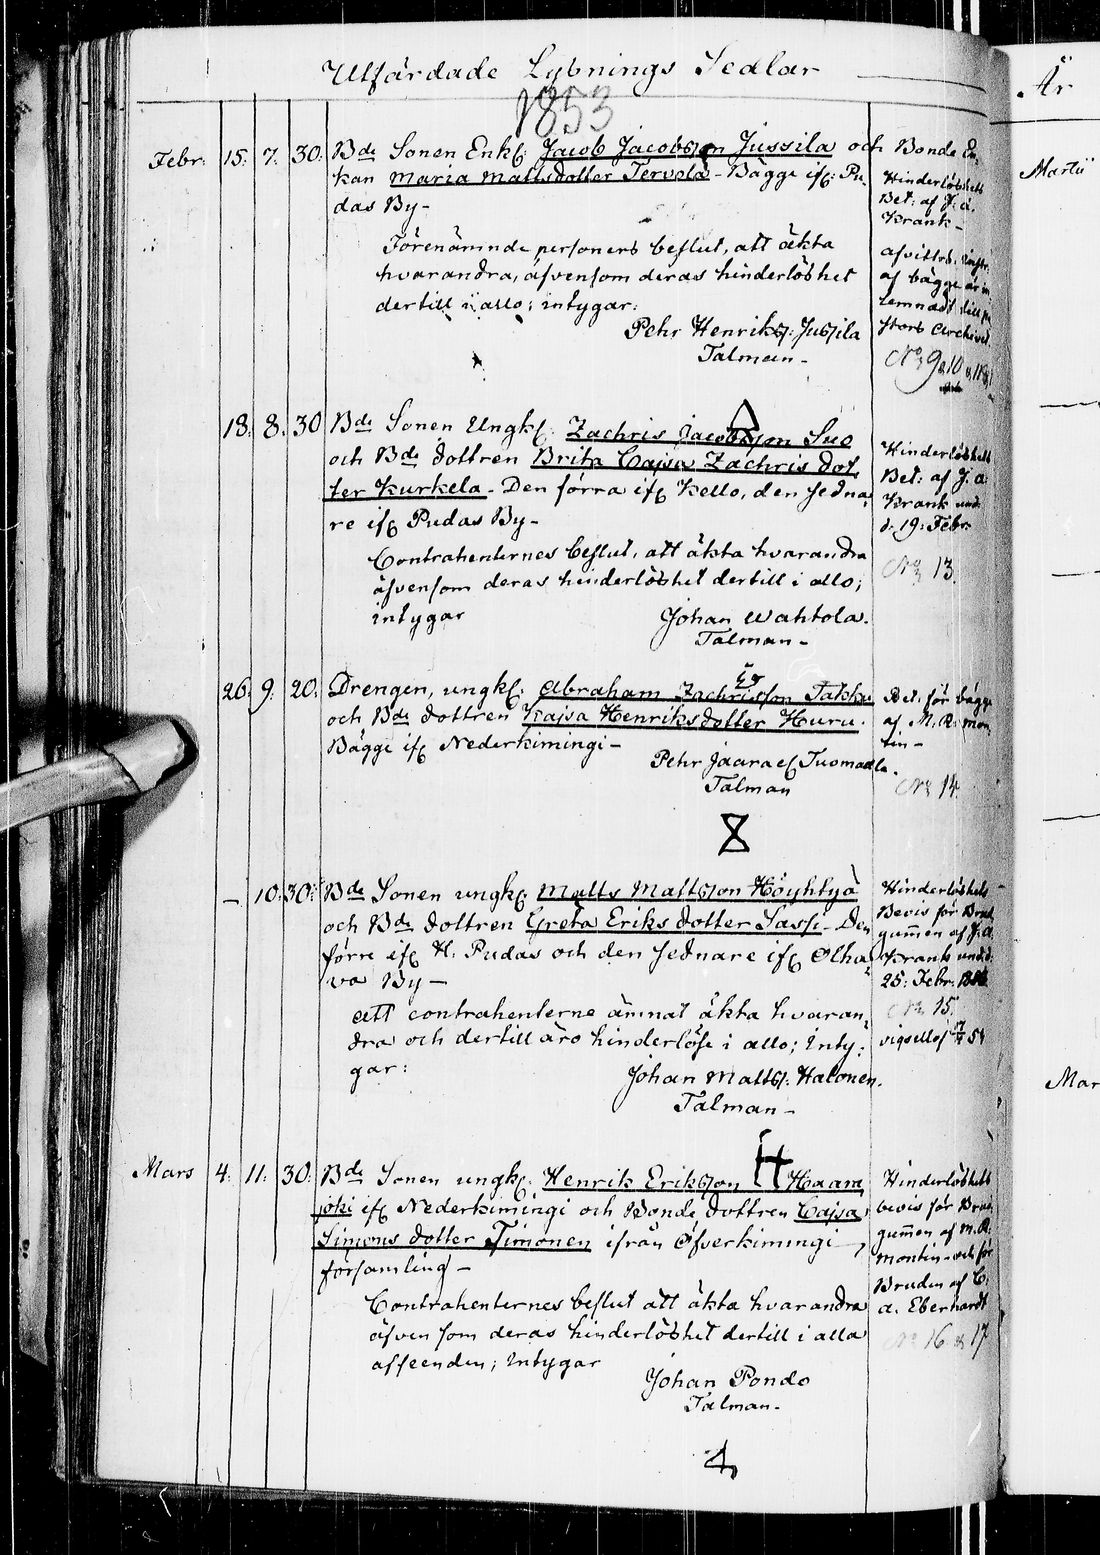 Utfärdade Lysnings Sedlar
1853
Febr: 15: 7. 30: Bde Sonen Enkl: Jacob Jacobsson Jussila och Bonde En
kan Maria Mattsdotter Tervola - Bägge ifr: Pu
das By -
Förenämnde personers beslut, att äkta
hvarandra, äfvensom deras hinderlöshet
dertill i allo; intygar:
Pehr Henriks: Jussila
Talman -
Hinderlöshets
Bet: af J. A.
Krank -
af bägge är in
lemnadt till pa
stors Archivet
No 9, 10 & 11
18: 8. 30 Bde Sonen Ungk: Zachris Jacobsson Suo
och Bde dottren Brita Cajsa Zachris dot
ter Kurkela - Den förra ifr Kello, den sedna
re ifr Pudas By -
Contrahenternes beslut, att äkta hvarandra
äfvensom deras hinderlöshet dertill i allo;
intygar
Johan Wahtola.
Talman -
Hinderlöshets
Bet: af J. A.
Krank und.
d. 19: Febr.
No 13.
26: 9. 20: Drengen, ungk: Abraham Zachrisson Takku
och Bde dottren Kajsa Henriksdotter Huru.
Bägge ifr Nederkimingi -
Pehr Jaara Tuomaala.
Talman
Bet: för bägge
af M. R. Mon
tin -
No 14.
- 10: 30: Bde Sonen ungk: Matts Mattsson Höyhtyä
och Bde dottren Greta Eriks dotter Sassi - Den
förre ifr H. Pudas och den sednare ifr Olha
va By -
Att contrahenterne ämnat äkta hvaran
dra och dertill äro hinderlöse i allo; Inty:
gar:
Johan Matts: Halonen.
Talman -
Hinderlöshets
Bevis för Brud
gummen af J. A.
Krank und: d:
25: Febr.
No 15.
Mars 4. 11: 30: Bde Sonen ungk: Henrik Eriksson Haara
joki ifr Nederkimingi och Bonde dottren Cajsa
Simons dotter Timonen ifrån Öfverkimingi
församling -
Contrahenternes beslut att äkta hvarandra
äfven som deras hinderlöshet dertill i alla
afseenden; Intygar
Johan Pondo
Talman -
Hinderlöshets
bevis för Brud
gummen af M. R.
Montin - och för
Bruden af C.
A. Eberhardt
No 16 & 17
År
Martii
Mar